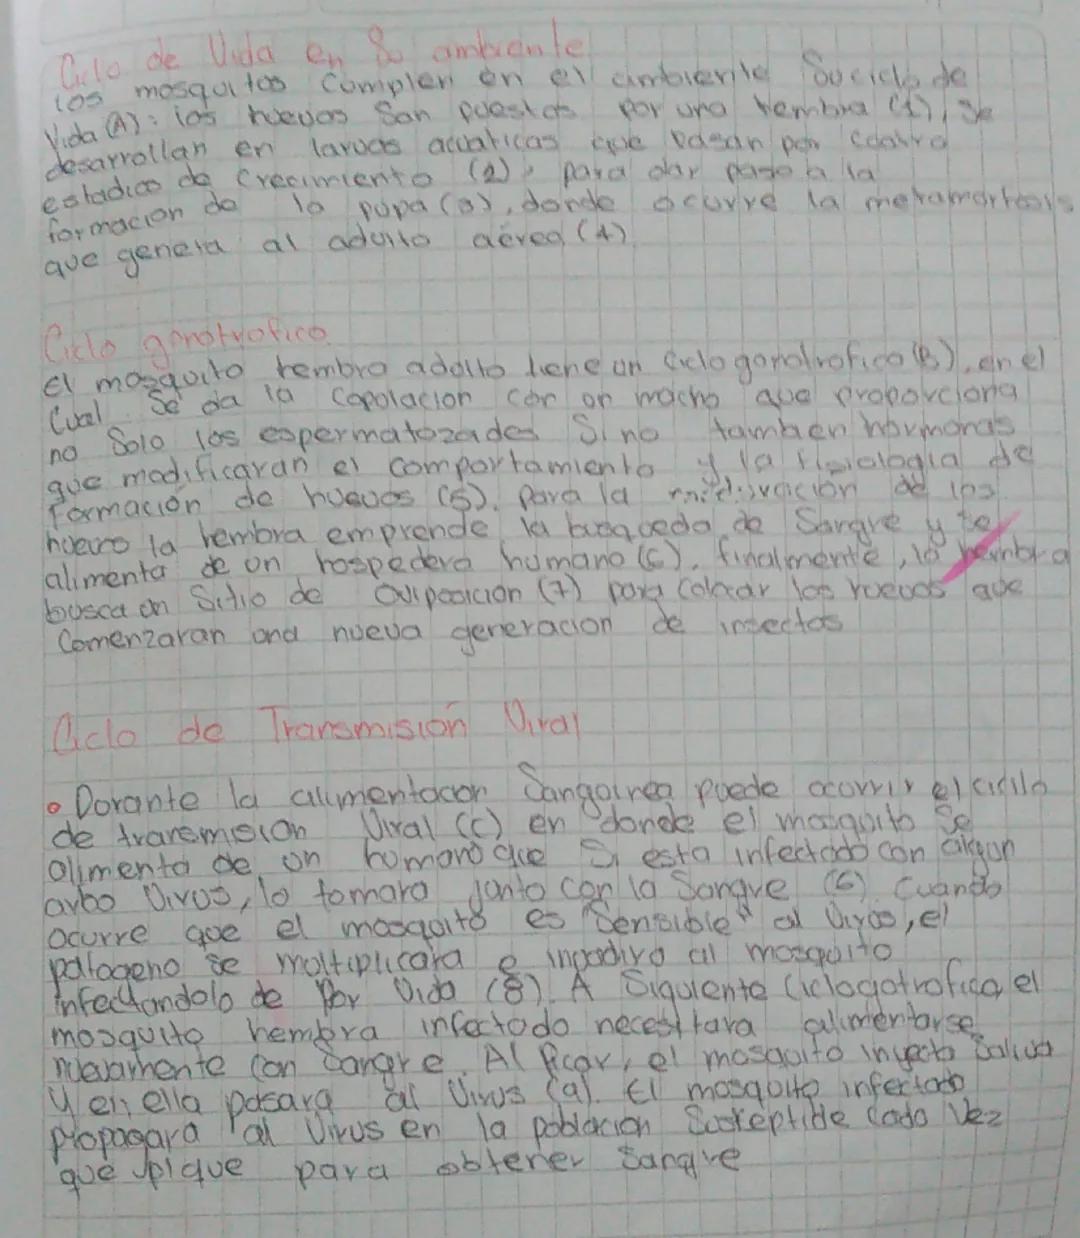 Ciclo de Vida en Su ambiente
los mosquitos complen en el ambiente Suciclo de
Vida (A): los huevos San puestos por una hembra (1), se
desarrollan en larvas acuaticas que pasan por coatro
estadios de Crecimiento (2), para dar paso a la
formacion de la pupa (3), donde ocurre la metamorfosis
que genera al adulto aérea (4)
Ciclo gonotrofico
El mosquito hembra adolto tiene un Ciclo gonotrofico (B), en el
Cual Se da la Copolacion con on macho que proporciona
no Solo los espermatozoides Sino tambien hormonas
que modificaran el comportamiento y la fisiologia de
formación de huevos (5). Para la maduración de los
huevos la hembra emprende la busqueda de Sangre y se
alimenta de on hospedero humano (6). finalmente, la hembra
busca on Sitio de Oviposicion (7) para Colocar los huevos que
Comenzaran ona nueva generacion de insectos
Ciclo de Transmisión Viral
• Dorante la alimentacon Sangoinea puede ocorrir el ciclo
de transmision Viral (C) en donde el mosquito Se
alimenta de on homano que Si esta infectado con algun
arbo Virus, lo tomara janto con la Sangre (6) Cuando
ocurre que el mosquito es "Sensible" al Virus, el
patogeno se moltiplicara e invadira al mosquito
infectandolo de Por Vida (8). A Siguiente Ciclogotrofica, el
mosquito hembra infectado necesitara alimentarse
nuevamente Con Sangre. Al Picar, el mosquito inyecta Saliva
y en ella pasara al Virus (a). El mosquito infectado
propagara al Virus en la poblacion Susteptible Cada Vez
que pique para obtener Sangre